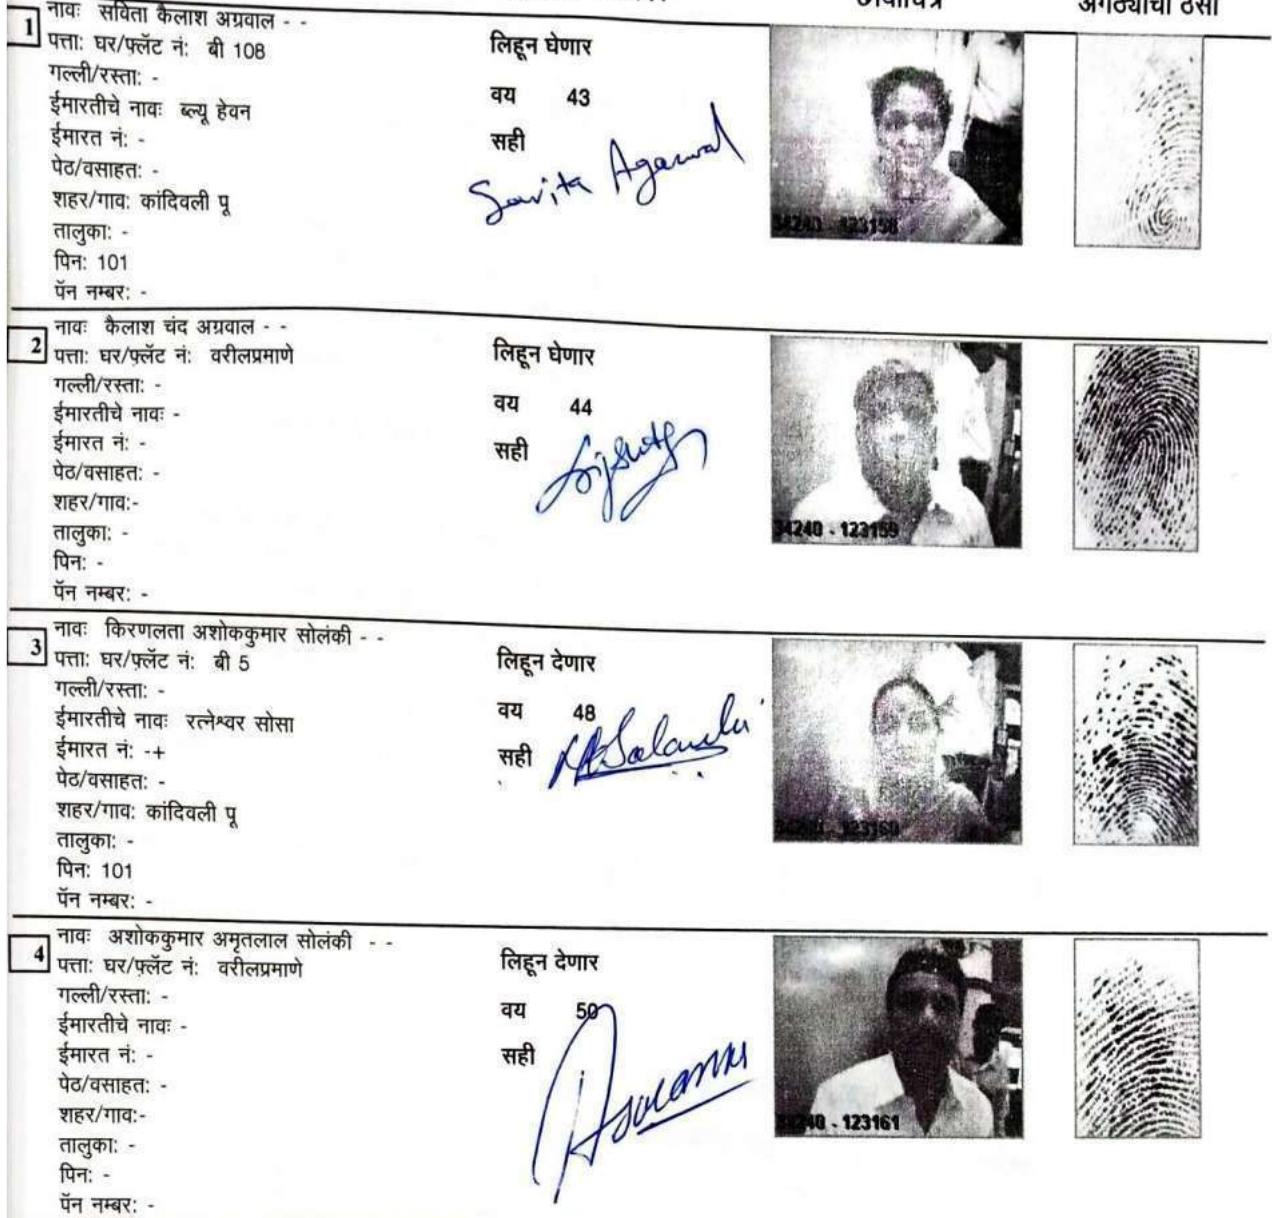 छायाचित्र
अंगठ्याचा ठसा
1
नावः सविता कैलाश अग्रवाल - -
पत्ता: घर/फ्लॅट नं: बी 108
गल्ली/रस्ता: -
ईमारतीचे नावः ब्ल्यू हेवन
ईमारत नं: -
पेठ/वसाहत: -
शहर/गाव: कांदिवली पू
तालुका: -
पिन: 101
पॅन नम्बर: -
लिहून घेणार
वय 43
सही
Savita Agarwal
34240 - 123158
2
नावः कैलाश चंद अग्रवाल - -
पत्ता: घर/फ्लॅट नं: वरीलप्रमाणे
गल्ली/रस्ता: -
ईमारतीचे नावः -
ईमारत नं: -
पेठ/वसाहत: -
शहर/गाव:-
तालुका: -
पिन: -
पॅन नम्बर: -
लिहून घेणार
वय 44
सही
34240 - 123159
3
नावः किरणलता अशोककुमार सोलंकी - -
पत्ता: घर/फ्लॅट नं: बी 5
गल्ली/रस्ता: -
ईमारतीचे नावः रत्नेश्वर सोसा
ईमारत नं: -+
पेठ/वसाहत: -
शहर/गाव: कांदिवली पू
तालुका: -
पिन: 101
पॅन नम्बर: -
लिहून देणार
वय 48
सही
34240 - 123160
4
नावः अशोककुमार अमृतलाल सोलंकी - -
पत्ता: घर/फ्लॅट नं: वरीलप्रमाणे
गल्ली/रस्ता: -
ईमारतीचे नावः -
ईमारत नं: -
पेठ/वसाहत: -
शहर/गाव:-
तालुका: -
पिन: -
पॅन नम्बर: -
लिहून देणार
वय 50
सही
34240 - 123161